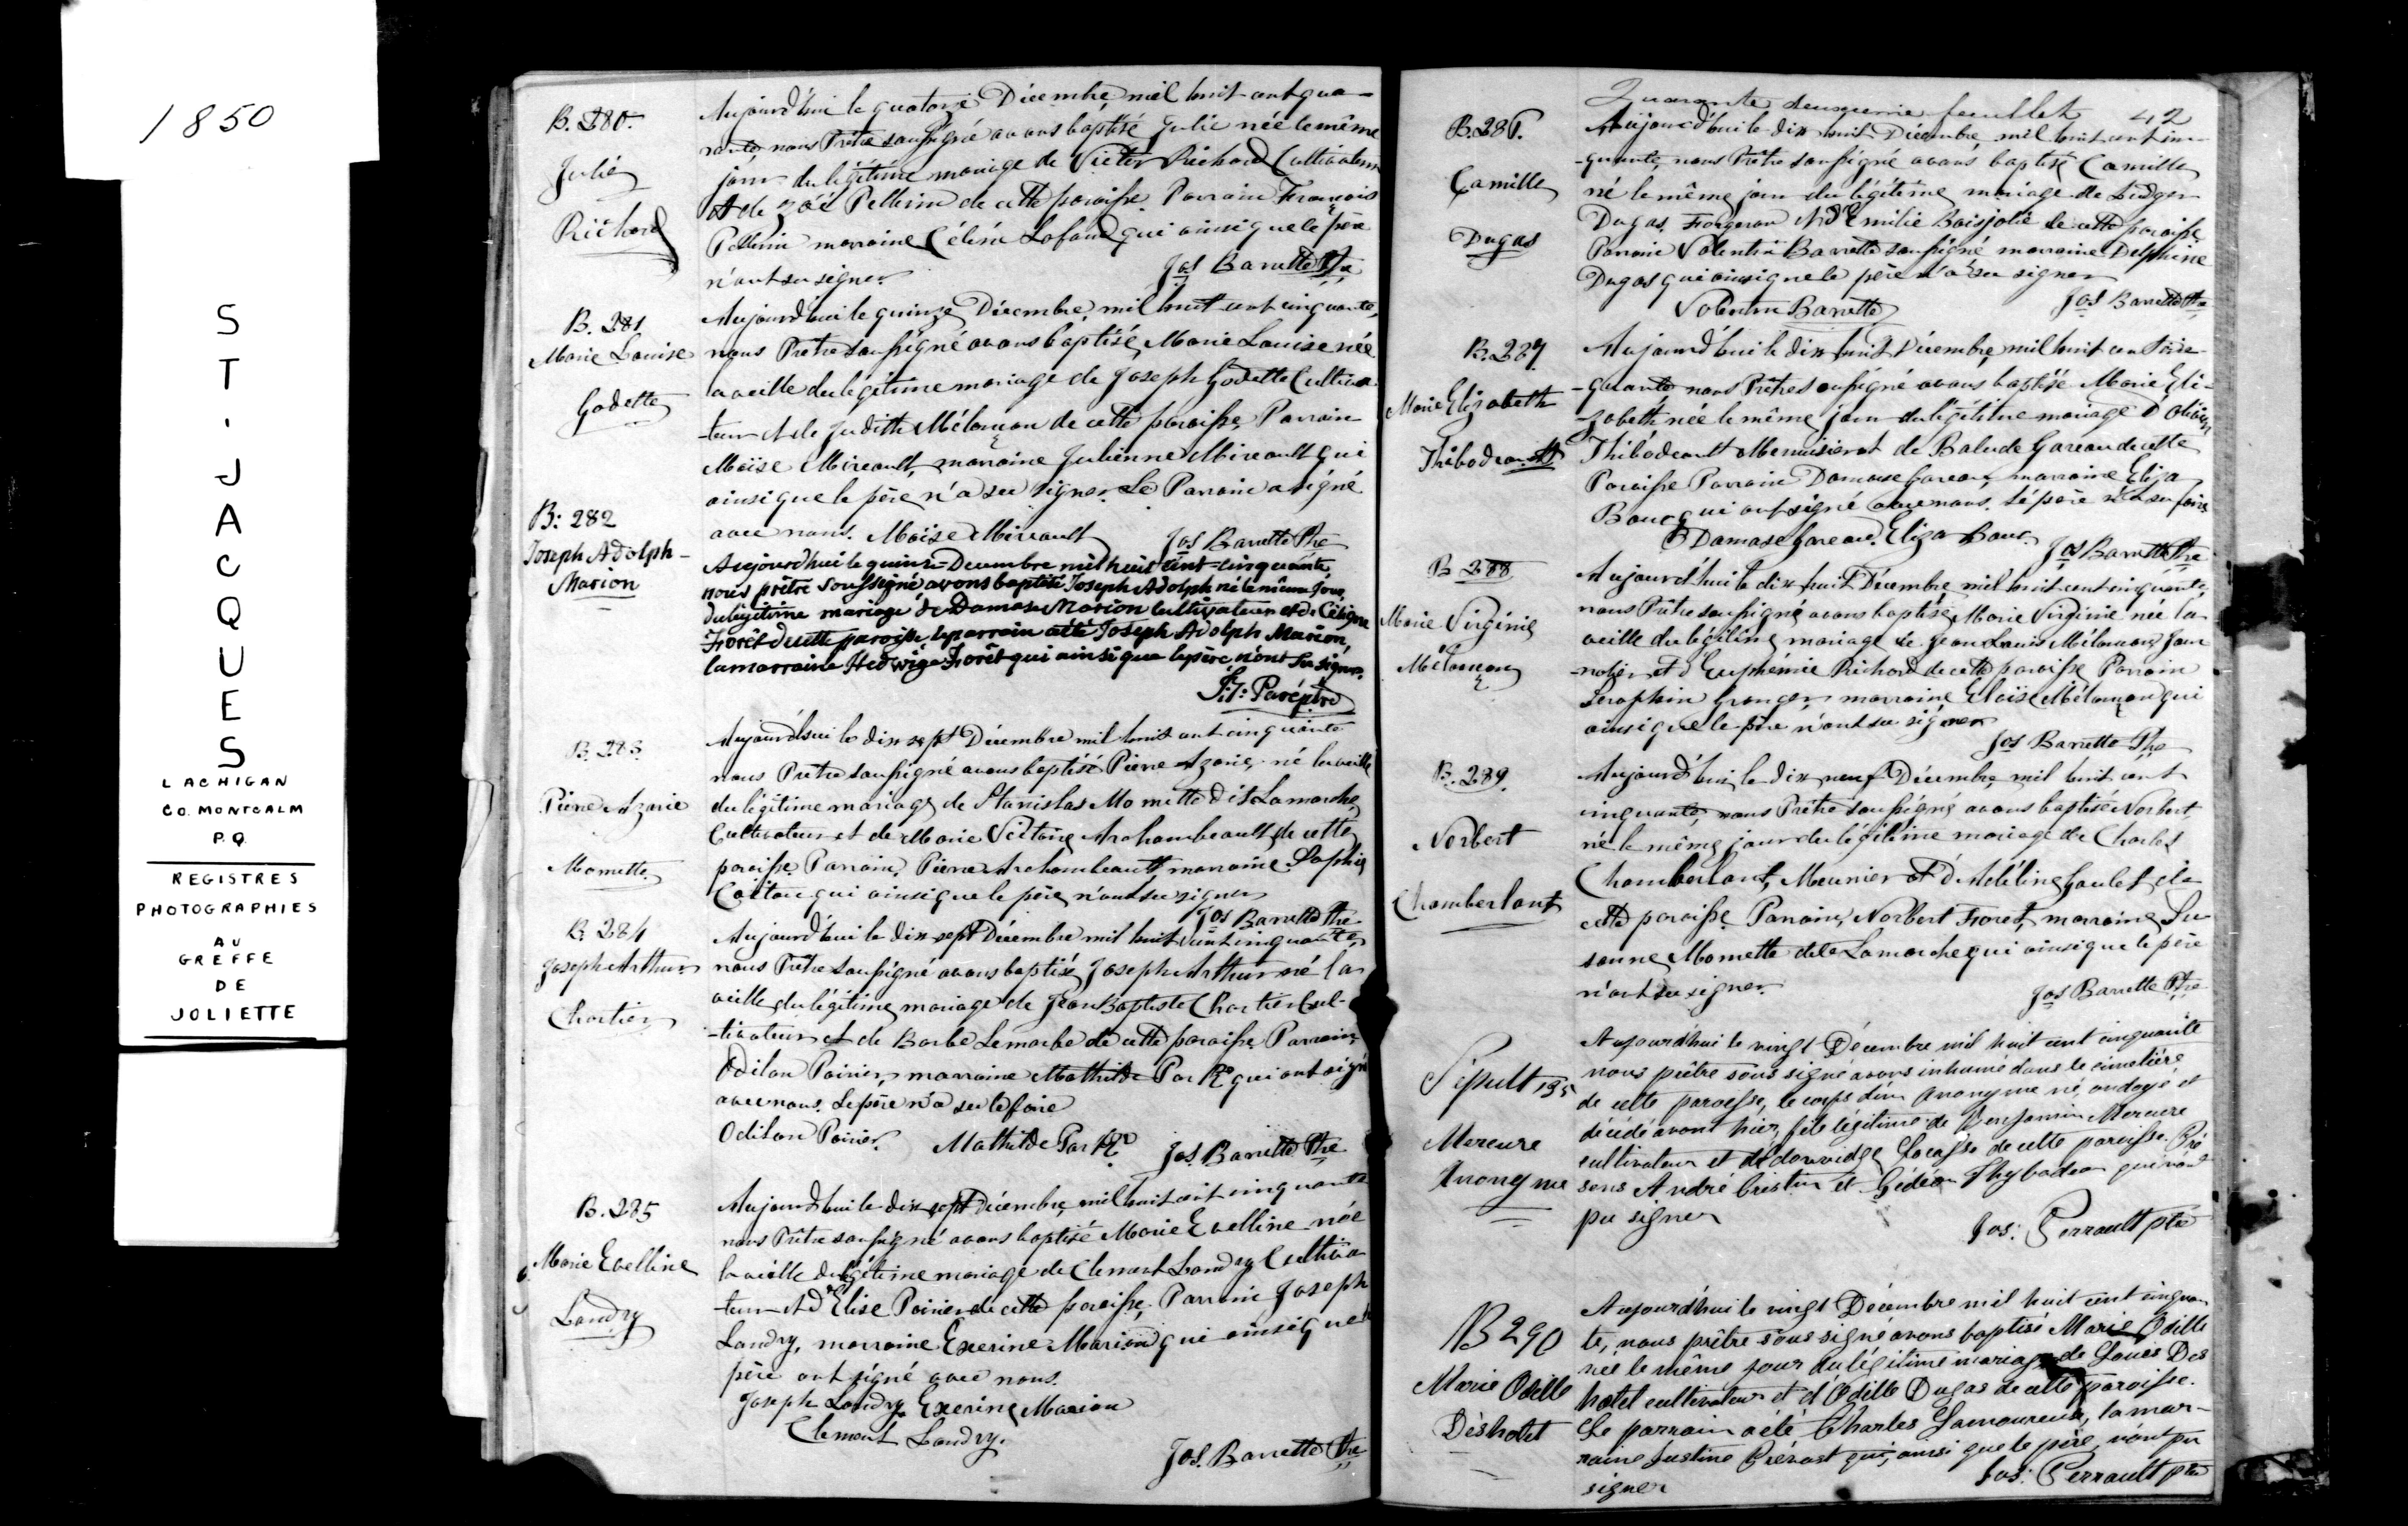 1850
ST. JACQUES
LACHIGAN
CO. MONTCALM
P.Q.
REGISTRES
PHOTOGRAPHIES
AU
GREFFE
DE
JOLIETTE
B. 280.
Julie
Richard
Aujourd'hui le quatorze Décembre mil huit cent qua-
rante, nous Prêtre soussigné avons baptisé Julie née le même
jour du légitime mariage de Victor Richard Cultivateur
et de Zoé Pellerin de cette paroisse Parrain François
Pellerin marraine Célina Lafond qui ainsi que le père
n'ont su signer.
Jos Barrette Ptre
B. 281
Marie Louise
Godette
Aujourd'hui le quinze Décembre, mil huit cent cinquante,
nous Prêtre soussigné avons baptisé Marie Louise née
la veille du légitime mariage de Joseph Godette Cultiva
-teur et de Judith Mélançon de cette paroisse Parrain
Moïse Mireault, marraine Julienne Mireault qui
ainsi que le père n'a su signer. Le Parrain a signé
avec nous. Moïse Mireault
Jos Barrette Ptre
B: 282
Joseph Adolph-
Marion
Aujourd'hui le quinze Decembre mil huit cent cinquante
nous prêtre soussigné avons baptisé Joseph Adolph né le même jour
du légitime mariage de Damase Marion cultivateur et de Céligne
Forêt de cette paroisse le parrain a été Joseph Adolph Marion,
la marraine Hedwige Forêt qui ainsi que le père n'ont su signer.
Paré ptre
B. 283
Pierre Azarie
Mamette
Aujourd'hui le dix sept Décembre mil huit cent cinquante
nous Prêtre soussigné avons baptisé Pierre Azarie né la veille
du légitime mariage de Stanislas Mamette dit Lamarche
Cultivateur et de Marie Victoire Archambeault de cette
paroisse Parrain, Pierre Archambeault, marraine Sophie
qui ainsi que le père n'ont su signer
Jos Barrette Ptre
B. 284
Joseph Arthur
Chartier
Aujourd'hui le dix sept Décembre mil huit cent cinquante,
nous Prêtre soussigné avons baptisé Joseph Arthur né la
veille du légitime mariage de Jean Baptiste Chartier Cul-
-tivateur et de Barbe Lemarbe de cette paroisse Parrain,
Odilon Poirier, marraine Mathilde qui ont signé
avec nous. Le père n'a su le faire
Odilon Poirier. Mathilde
Jos. Barrette Ptre
B. 285
Marie Evelline
Landry
Aujourd'hui le dix sept Décembre, mil huit cent cinquante
nous Prêtre soussigné avons baptisé Marie Evelline née
la veille du légitime mariage de Clement Landry Cultiva
-teur et d'Elise Poirier de cette paroisse, Parrain Joseph
Landry, marraine Exerine Marion qui ainsi que le
père ont signé avec nous.
Joseph Landry Exerine Marion
Clement Landry.
Jos. Barrette Ptre
Quarante deuxième feuillet 42
B. 286.
Camille
Dugas
Aujourd'hui le dix huit Décembre, mil huit cent cin-
-quante, nous Prêtre soussigné avons baptisé Camille
né le même jour du légitime mariage de Ludger
Dugas, Forgeron et d'Emilie Boisjolie de cette paroisse
Parrain Valentin Barrette soussigné marraine Delphine
Dugas qui ainsi que le père n'a su signer
Valentin Barrette
Jos Barrette Ptre
B. 287
Marie Elizabeth
Thibodeault
Aujourd'hui le dix huit Décembre, mil huit cent cin-
-quante, nous Prêtre soussigné avons baptisé Marie Eli-
-zabeth née le même jour du légitime mariage d'Olivier
Thibodeault Menuisier et de Gareau de cette
Paroisse Parrain Damase Gareau, marraine Eliza
Bourg qui ont signé avec nous. Le père n'a su faire
Damase Gareau. Eliza Bourg
Jos Barrette Ptre
B 288
Marie Virginie
Mélançon
Aujourd'hui le dix huit Décembre, mil huit cent cinquante,
nous Prêtre soussigné avons baptisé Marie Virginie née la
veille du légitime mariage de Jean Louis Mélançon Jour
-nalier et d'Euphémie Richard de cette paroisse Parrain
Séraphin Granger, marraine Eloïse Mélançon qui
ainsi que le père n'ont su signer
Jos Barrette Ptre
B. 289.
Norbert
Chamberlant
Aujourd'hui le dix neuf Décembre, mil huit cent
cinquante, nous Prêtre soussigné avons baptisé Norbert,
né le même jour du légitime mariage de Charles
Chamberlant, Meunier et d'Adéline Goulet de
cette paroisse Parrain, Norbert Forest, marraine Su
sanne Mamette dite Lamarche qui ainsi que le père
n'ont su signer.
Jos Barrette Ptre
Sépult 135
Mercure
Anonyme
Aujourd'hui le vingt Décembre mil huit cent cinquante
nous prêtre sous signé avons inhumé dans le cimetière
de cette paroisse, le corps d'un Anonyme né, ondoyé et
décédé avant hier, fils légitime de Benjamin Mercure
cultivateur et de cette paroisse. Pré
sens André et Gédéon Thybodeau qui n'ont
pu signer
Jos: Perrault ptre
B 290
Marie Odille
Deshotel
Aujourd'hui le vingt Décembre mil huit cent cinquan
te, nous prêtre sous signé avons baptisé Marie Odille
née le même jour du légitime mariage de Louis Des
hotel cultivateur et d'Odille Dugas de cette paroisse.
Le parrain a été Charles Lamoureux, la mar-
raine Justine Prévost qui, ainsi que le père, n'ont pu
signer
Jos: Perrault ptre